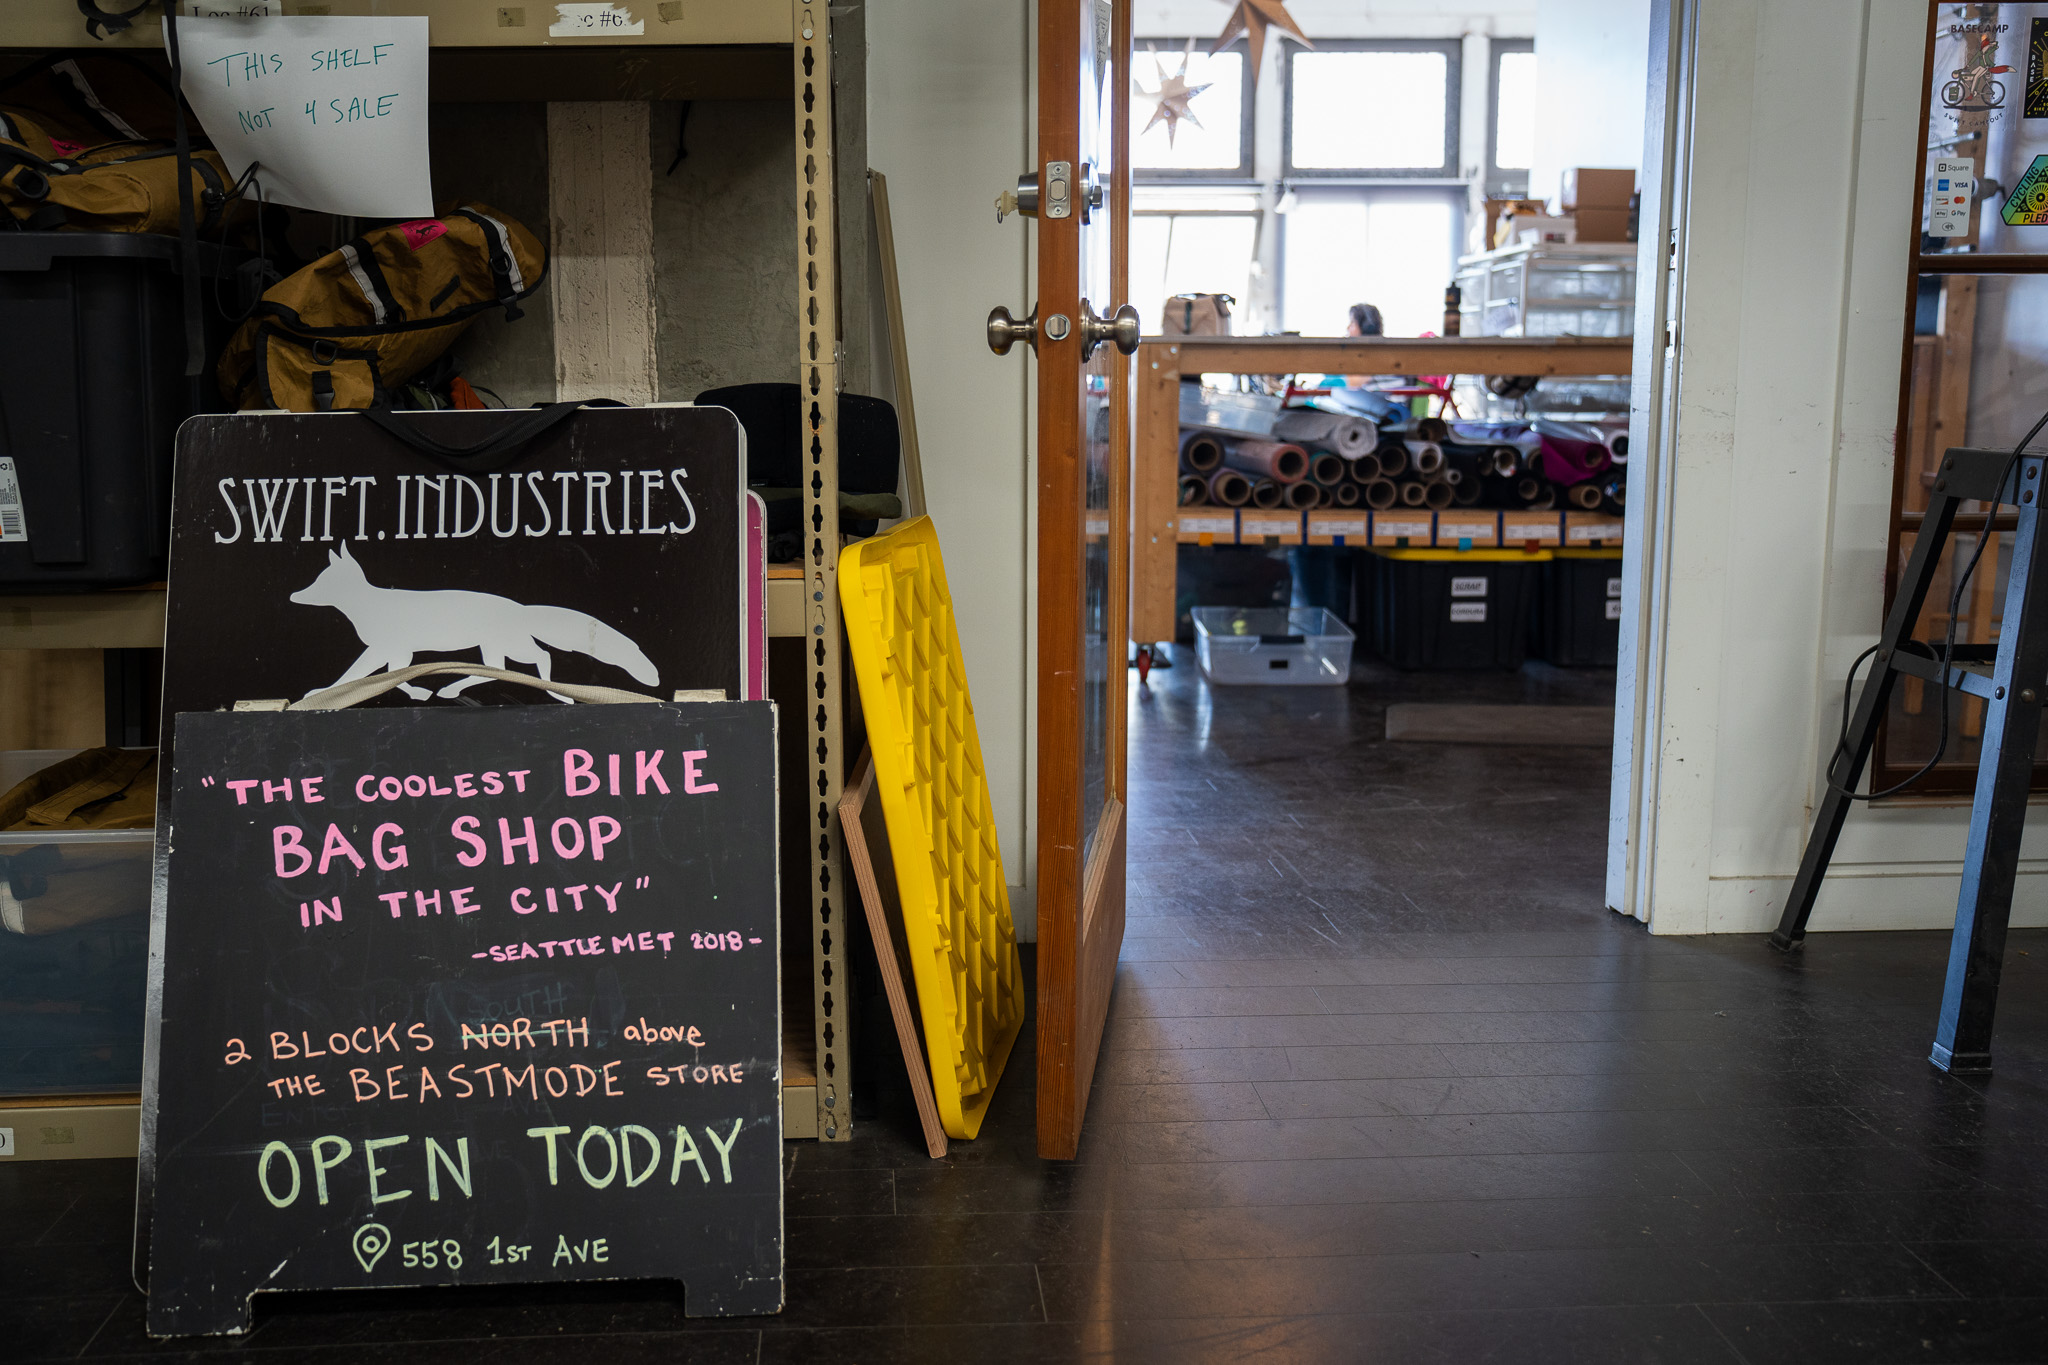 Loc #61
THIS SHELF
NOT 4 SALE
SWIFT.INDUSTRIES
"THE COOLEST BIKE
BAG SHOP
IN THE CITY"
-SEATTLE MET 2018-
2 BLOCKS NORTH above
THE BEASTMODE STORE
OPEN TODAY
558 1ST AVE
SCRAP
CORDURA
BASECAMP
SWIFT CAMPOUT
Square
VISA
G Pay
CYCLING